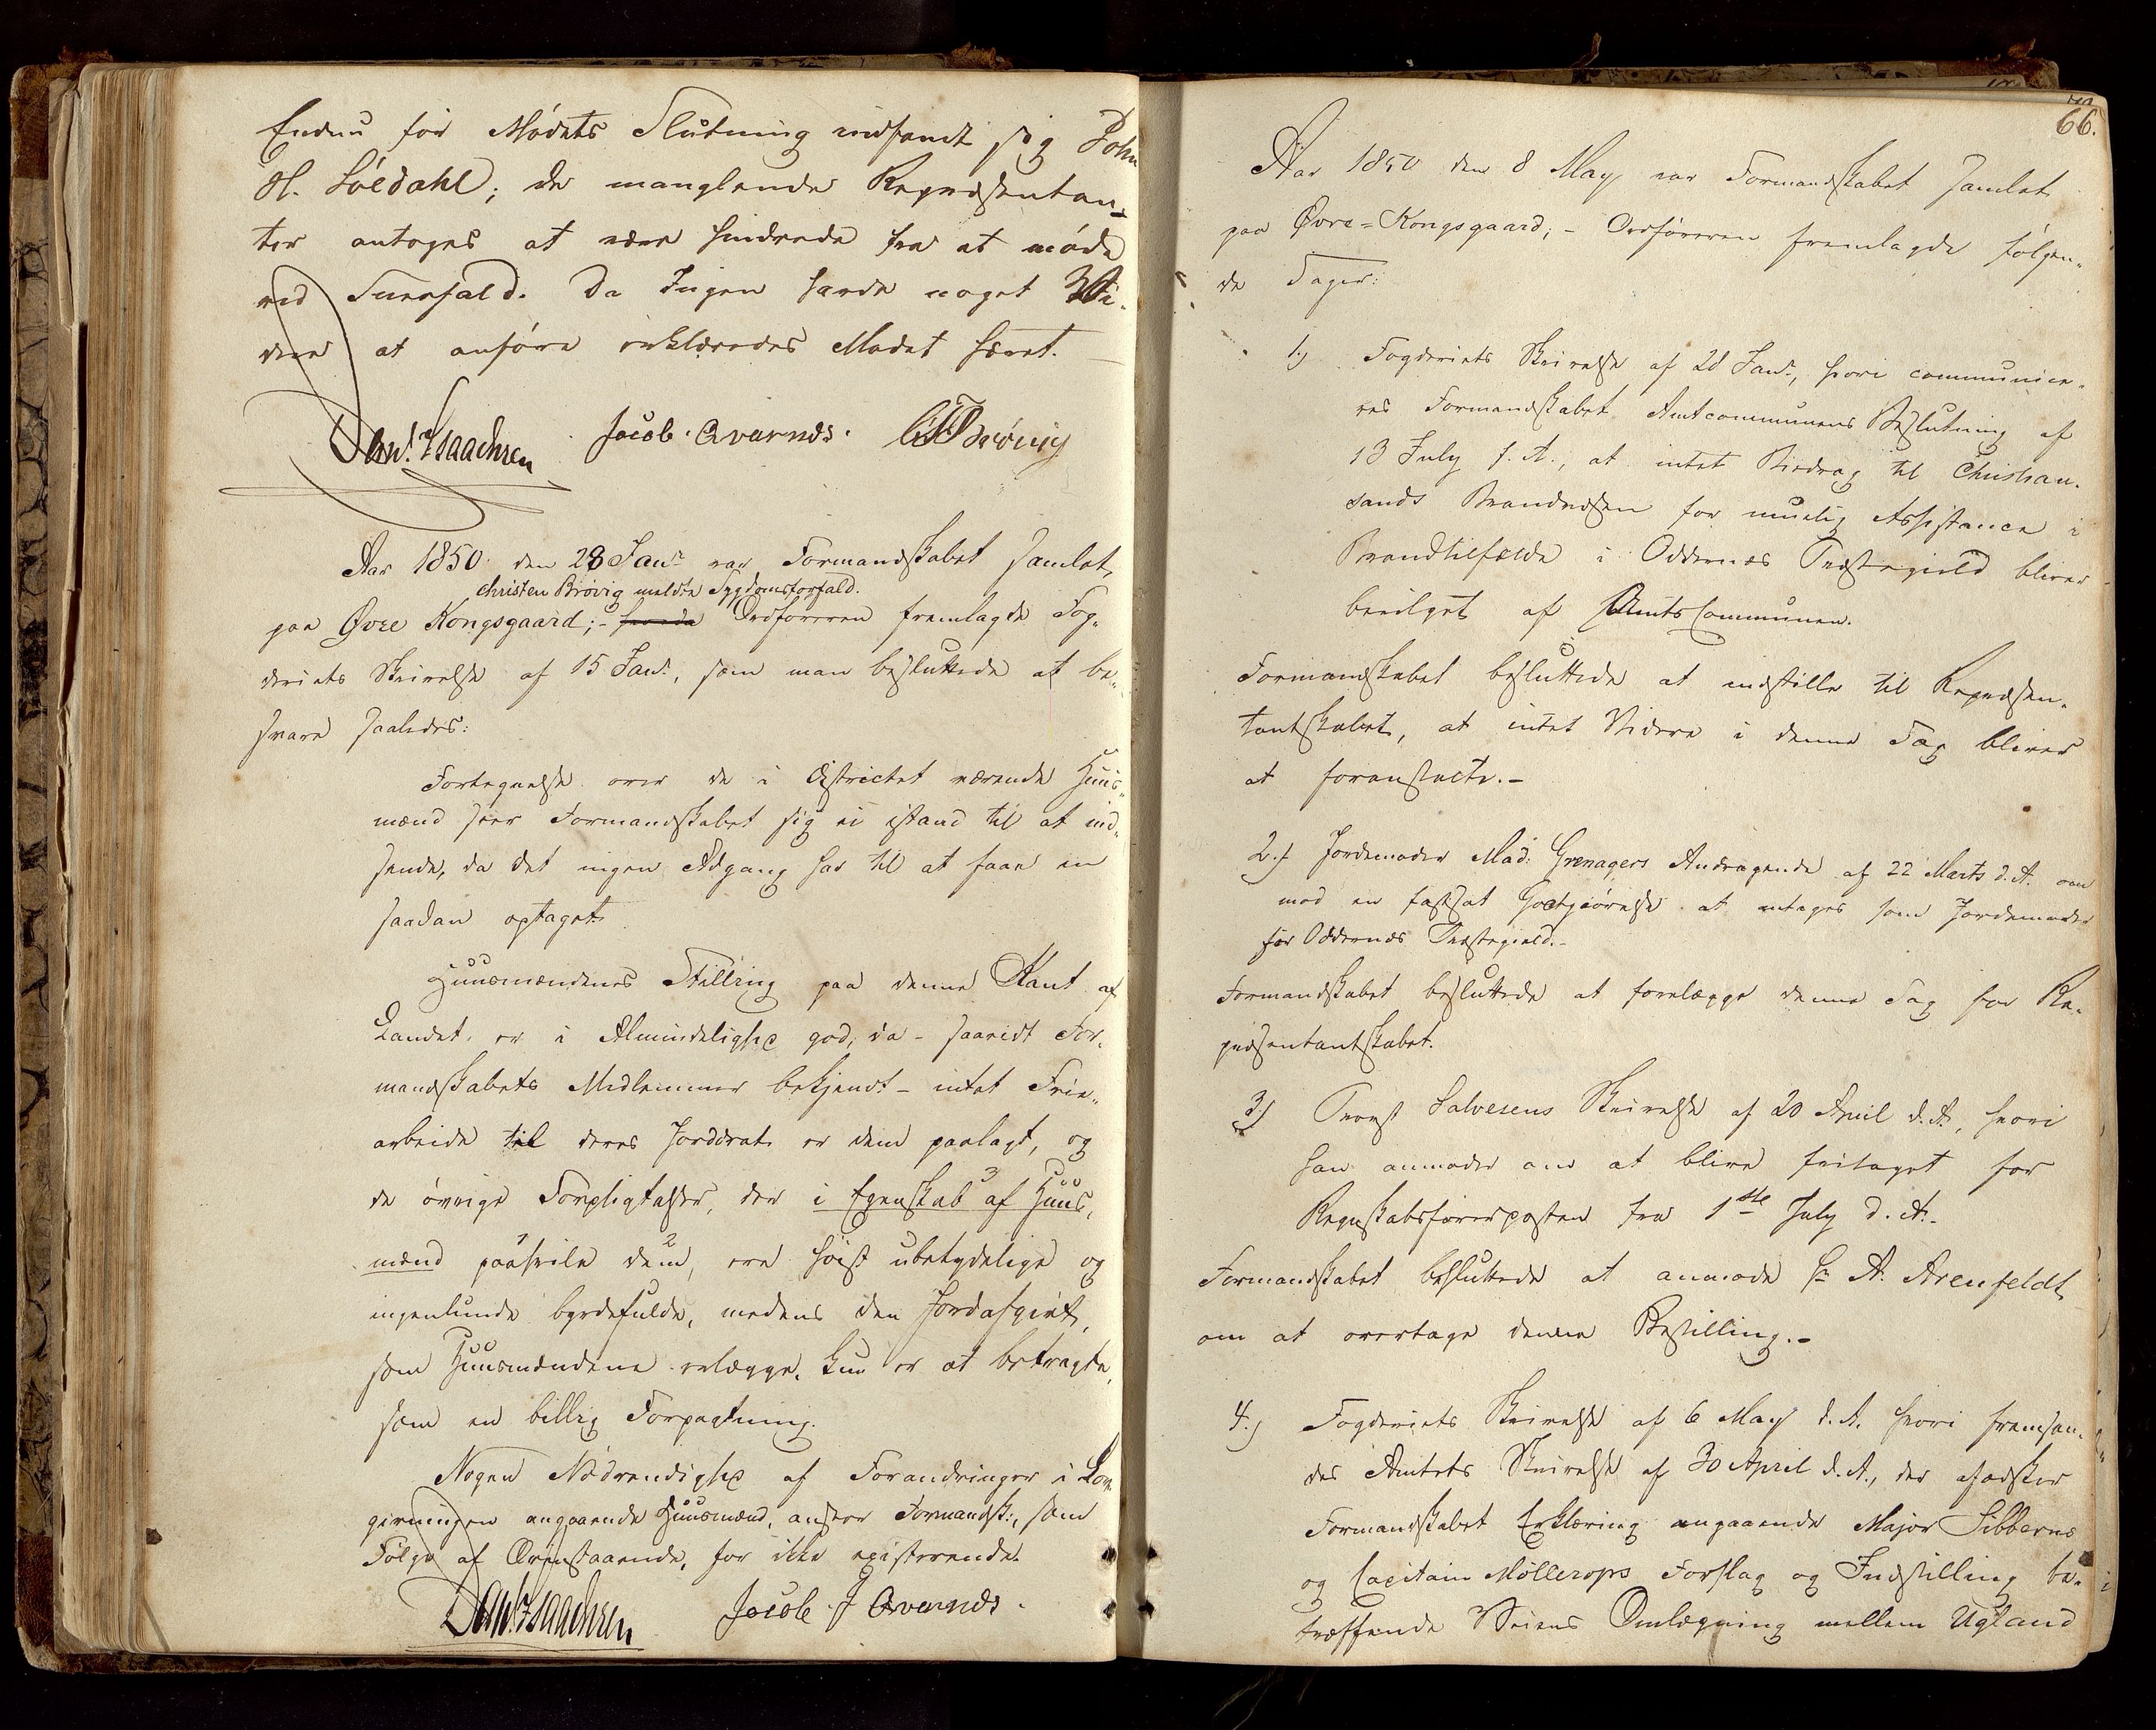 Endnu før Mødets Slutning indfandt sig John
H. Søedahl; de manglende Repræsentan-
ter antoges at være hindrede fra at møde
ved Snefald. Da Ingen havde noget Vi-
dere at anføre erklæredes Mødet hævet.
Dan. Isaachsen Jacob Qvarnæs. C Brøvig
Aar 1850 den 28 Janr. var Formandskabet samlet
Christen Brøvig meldte Sygdomsforfald.
paa Øvre Kongsgaard; - Ordføreren fremlagde Fog-
deriets Skrivelse af 15 Janr., som man besluttede at be-
svare saaledes:
Fortegnelse over de i Districtet værende Huus-
mænd seer Formandskabet sig ei istand til at ind-
sende, da det ingen Adgang har til at faae en
saadan optaget.
Huusmændenes Stilling paa denne Kant af
Landet, er i Almindelighed god, da - saavidt For-
mandskabets Medlemmer bekjendt - intet Frie-
arbeide til deres Jorddrot er dem paalagt, og
de øvrige Forpligtelser, der i Egenskab af Huus-
mænd paahvile dem, ere høist ubetydelige og
ingenlunde byrdefulde, medens den Jordafgivt,
som Huusmændene erlægge, kun er at betragte,
som en billig Forpagtning.
Nogen Nødvendighed af Forandringer i Lov-
givningen angaaende Huusmænd, anseer Formandsk:, som
Følge af Ovenstaaende, for ikke existerende.
Dan. Isaachsen Jacob J Qvarnæs.
66.
Aar 1850 den 8 May var Formandskabet samlet
paa Øvre-Kongsgaard; - Ordføreren fremlagde følgen-
de Sager:
1.) Fogderiets Skrivelse af 28 Janr., hvori communice-
res Formandskabet Amtcommunens Beslutning af
13 July f. A., at intet Bidrag til Christian-
sands Brandvæsen for muelig Assistance i
Brandtilfælde i Oddernæs Præstegield bliver
bevilget af AmtsCommunen.
Formandskabet besluttede at indstille til Repræsen-
tantskabet, at intet Videre i denne Sag bliver
at foranstalte.-
2.) Jordemoder Mad: Grenagers Andragende af 22 Marts d. A. om
mod en fastsat Godtgjørelse at antages som Jordemoder
for Oddernæs Præstegield.-
Formandskabet besluttede at forelægge denne Sag for Re-
præsentantskabet.
3) Provst Salvesens Skrivelse af 20 April d. A., hvori
han anmoder om at blive fritaget for
Regnskabsførerposten fra 1ste July d. A.-
Formandskabet besluttede at anmode Hr A. Arenfeldt
om at overtage denne Bestilling.-
4.) Fogderiets Skrivelse af 6 May d. A. hvori fremsen-
des Amtets Skrivelse af 30 April d. A., der æsker
Formandskabet Erklæring angaaende Major Sibberns
og Capitain Møllerops Forslag og Indstilling be-
træffende Veiens Omlægning mellem Ugland